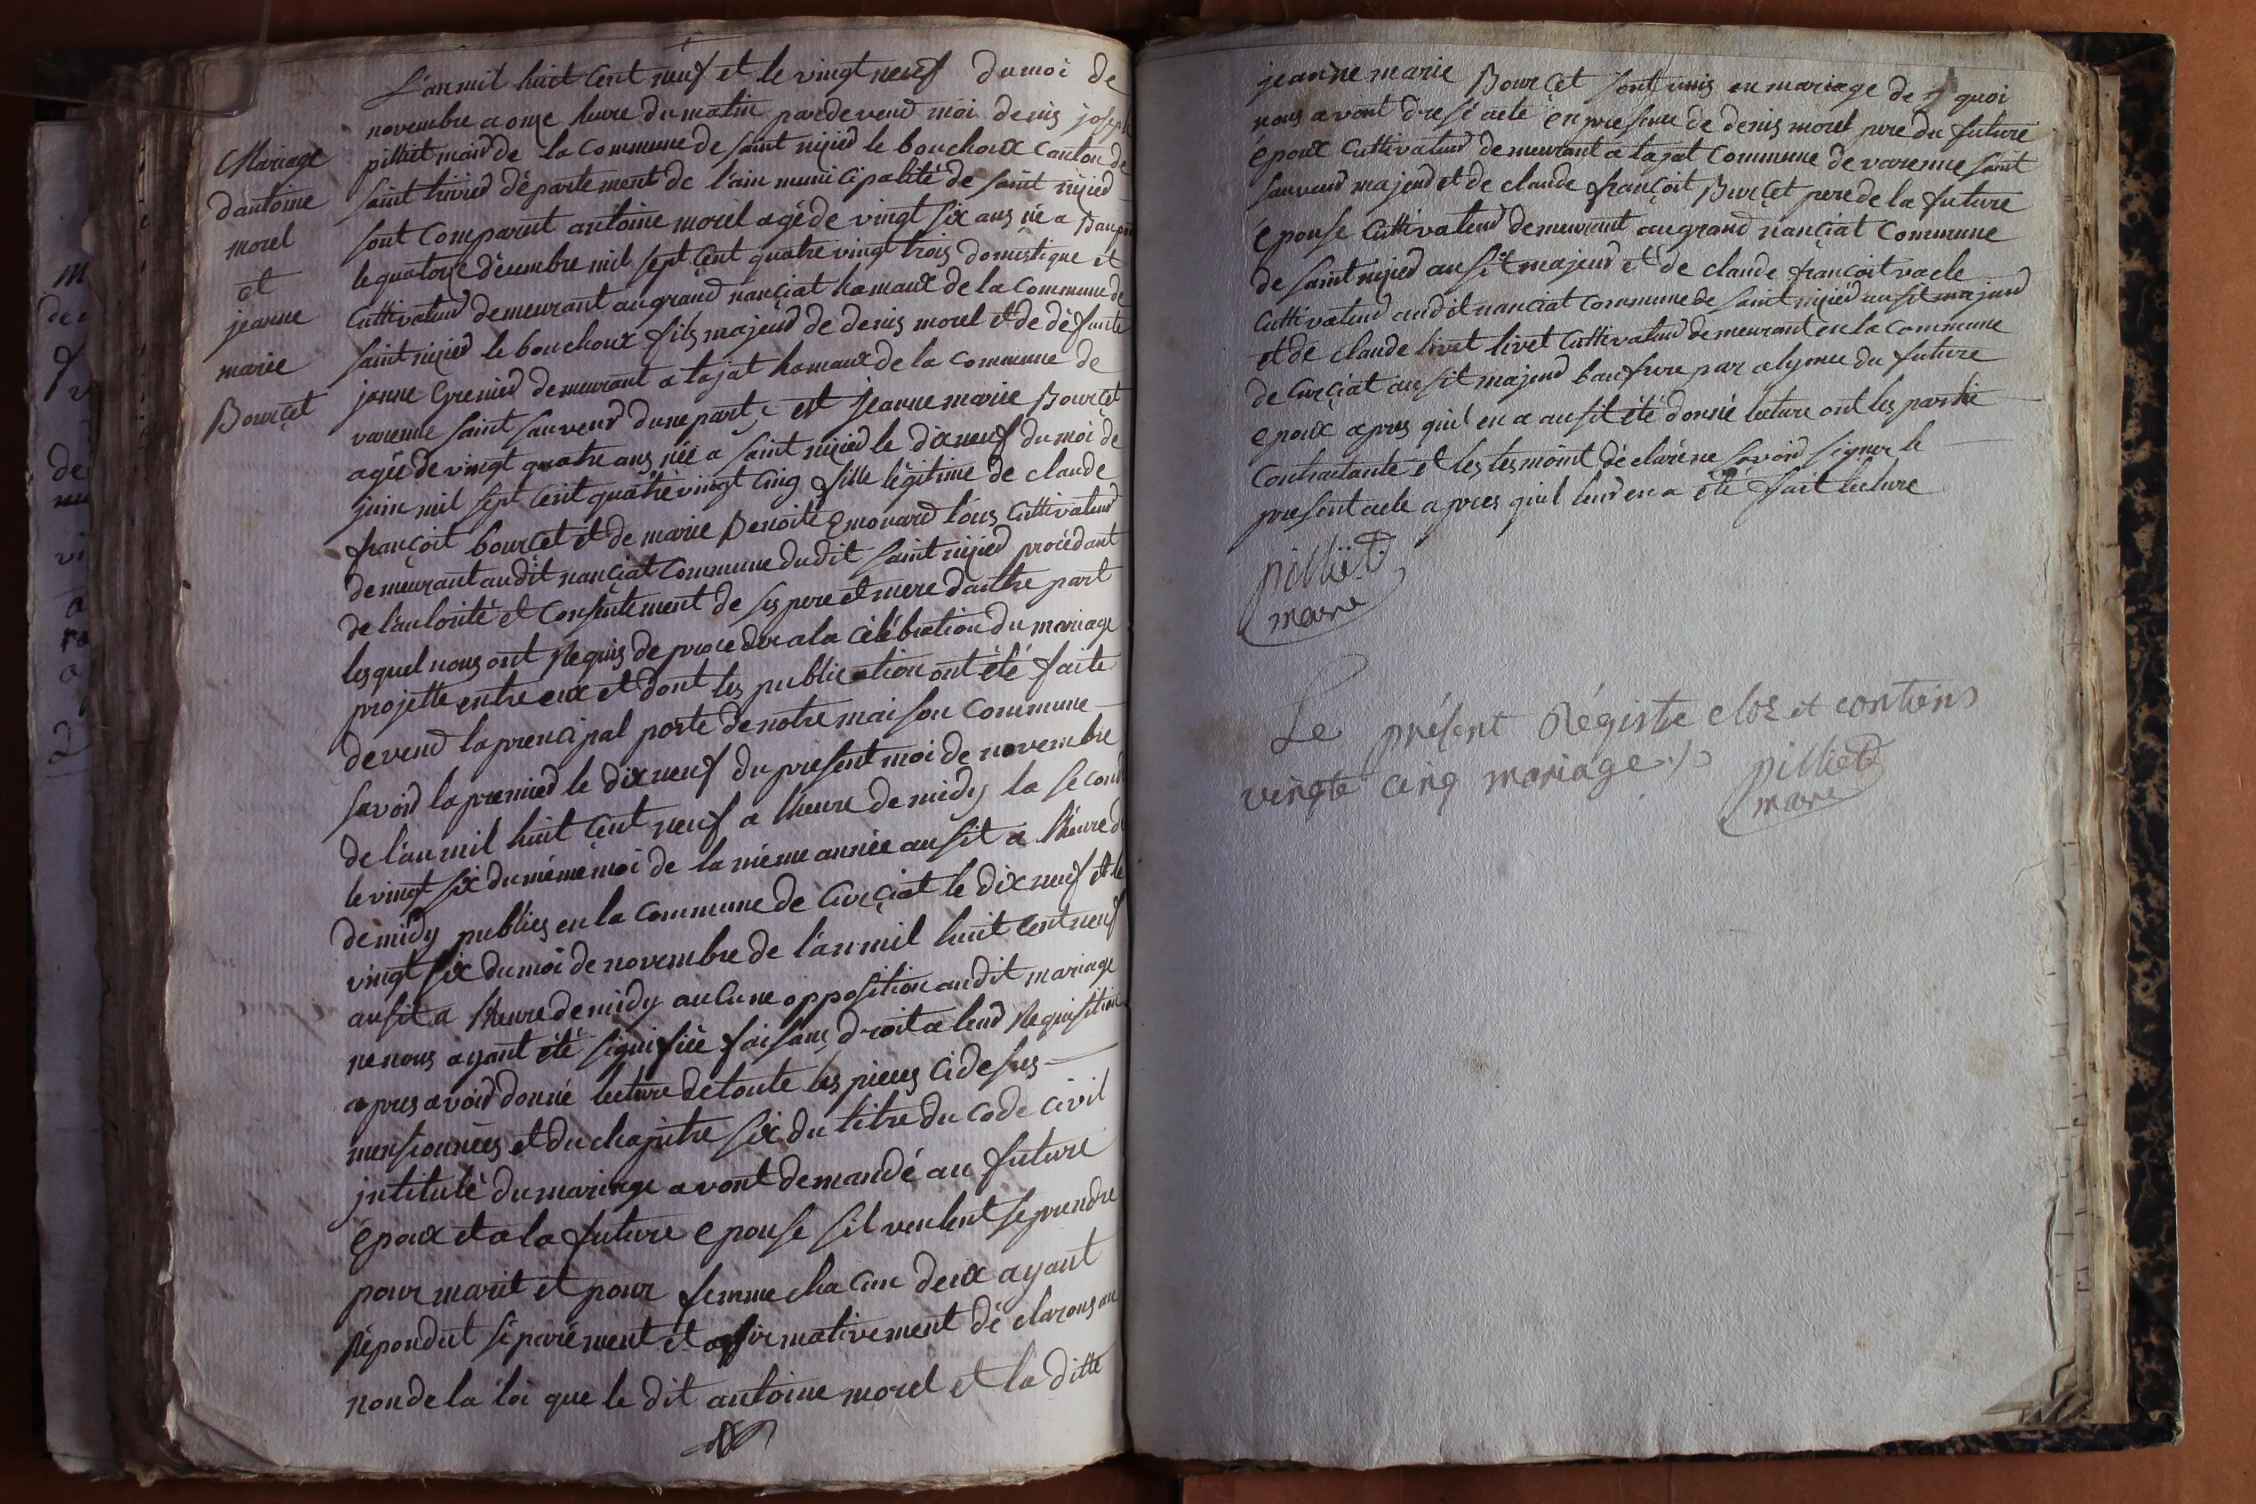 Mariage
dantoine
morel
et
jeanne
marie
Bourcet
L'an mil huit cent neuf et le vingt neuf du moi de
novembre a onze heure du matin pardevend moi denis joseph
pilliet maird de la commune de saint nizied le bouchoux canton de
saint département de l'ain municipalité de saint nizied
sont comparut antoine morel agé de vingt six ans né a
le quatorze décembre mil sept cent quatre vingt trois domestique et
cultivateur demeurant au grand nanciat hamaux de la commune de
saint nizied le bouchoux fils majeur de denis morel et de défunte
janne Grenied demeurant a tajat hamaux de la commune de
varenne saint sauveur dune part, et jeanne marie Bourcet
agée de vingt quatre ans née a saint nizied le dix neuf du moi de
juin mil sept cent quatre vingt cinq fille légitime de claude
françoit bourcet et de marie Benoite Emonard tous cultivateur
demeurant audit nanciat commune dudit saint nizied procédant
de l'autorité et consentement de ses pere et mere dautre part
lesquel nous ont Requis de proceder a la célébration du mariage
projetté entre eux et dont les publication ont été faite
devend la principal porte de notre maison commune
savoid la premied le dix neuf du present moi de novembre
de l'an mil huit cent neuf a lheure de midy la second
le vingt six du même moi de la même année ausit a lheure de
demidy publies en la commune de curciat le dix neuf et le
vingt six du moi de novembre de l'an mil huit cent neuf
ausit a lheure de midy aucune opposition audit mariage
ne nous ayant été signifiée faisans droit a leur Requisition
apres avoid donné lecture de toute les pieces cidesus
mensionnées et du chapitre six du titre du code civil
jntitulé du mariage avont demandé au future
époux et a la future epouse sil veulent se prendre
pour marit et pour femme chacun deux ayant
Répondut séparément et affirmativement déclarons au
non de la loi que le dit antoine morel et la ditte
jeanne marie Bourcet sont unis en mariage de quoi
nous avont dresé acte en presence de denis morel pere du future
époux cultivateur demeurant a tajat commune de varenne saint
sauveur majeur et de claude françoit Burcet pere de la future
épouse cultivateur demeurant au grand nanciat commune
de saint nizied ausit majeur et de claude françoit vacle
cultivateur audit nanciat commune de saint nizied ausit majeur
et de claude livet livet cultivateur demeurant en la commune
de curciat ausit majeur baufrere par alyence du future
epoux apres quil en a ausit été donné lecture ont les partie
contractante et les tesmoint déclaré ne savoid signer le
present acte apres quil leur en a été fait lecture
pilliet
maire
Le présent Régistre clos et contien
vingte cinq mariage
pilliet
maire